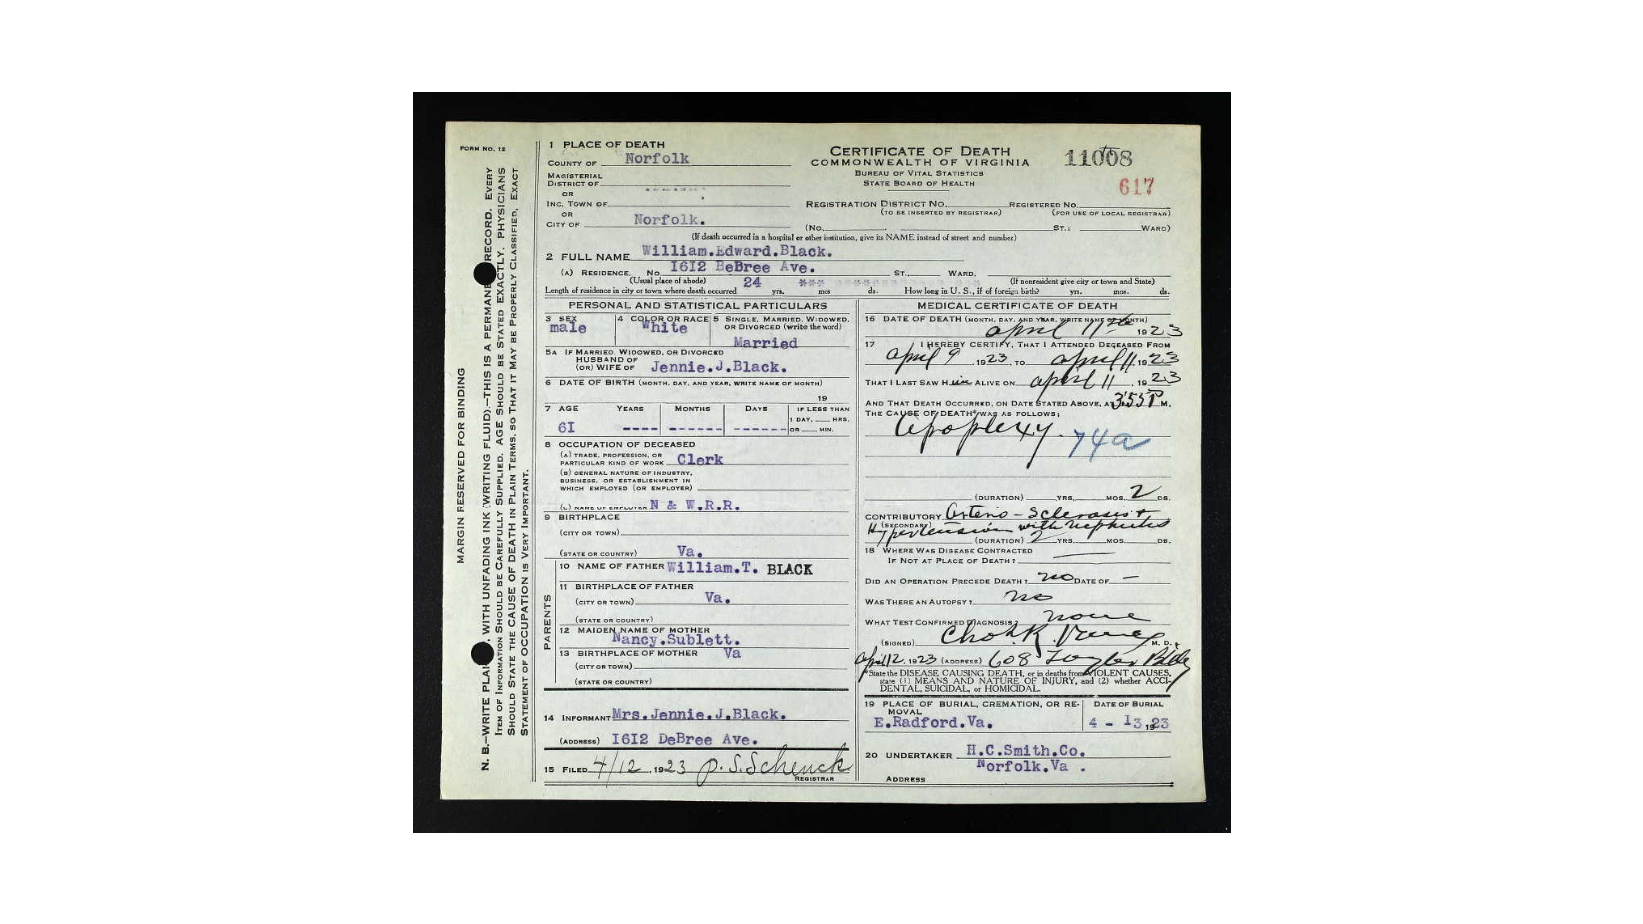 FORM NO. 12
MARGIN RESERVED FOR BINDING
N. B.—WRITE PLAI , WITH UNFADING INK (WRITING FLUID).—THIS IS A PERMANE RECORD. EVERY
ITEM OF INFORMATION SHOULD BE CAREFULLY SUPPLIED. AGE SHOULD BE STATED EXACTLY. PHYSICIANS
SHOULD STATE THE CAUSE OF DEATH IN PLAIN TERMS, SO THAT IT MAY BE PROPERLY CLASSIFIED. EXACT
STATEMENT OF OCCUPATION IS VERY IMPORTANT.
1 PLACE OF DEATH
COUNTY OF Norfolk
MAGISTERIAL
DISTRICT OF
OR
INC. TOWN OF
OR
CITY OF Norfolk.
CERTIFICATE OF DEATH
COMMONWEALTH OF VIRGINIA
BUREAU OF VITAL STATISTICS
STATE BOARD OF HEALTH
11008
617
REGISTRATION DISTRICT NO. REGISTERED NO.
(TO BE INSERTED BY REGISTRAR) (FOR USE OF LOCAL REGISTRAR)
(NO. ST.; WARD)
(If death occurred in a hospital or other institution, give its NAME instead of street and number)
2 FULL NAME William.Edward.Black.
(A) RESIDENCE. No. 1612 DeBree Ave. ST., WARD.
(Usual place of abode) (If nonresident give city or town and State)
Length of residence in city or town where death occurred 24 yrs. mos ds. How long in U. S., if of foreign birth? yrs. mos. ds.
PERSONAL AND STATISTICAL PARTICULARS
3 SEX 4 COLOR OR RACE 5 SINGLE, MARRIED, WIDOWED,
OR DIVORCED (write the word)
male White Married
5A IF MARRIED, WIDOWED, OR DIVORCED
HUSBAND OF
(OR) WIFE OF Jennie.J.Black.
6 DATE OF BIRTH (MONTH, DAY, AND YEAR, WRITE NAME OF MONTH)
19
7 AGE YEARS MONTHS DAYS IF LESS THAN
1 DAY, HRS.
61 ---- ------ ------ OR MIN.
8 OCCUPATION OF DECEASED
(A) TRADE, PROFESSION, OR
PARTICULAR KIND OF WORK Clerk
(B) GENERAL NATURE OF INDUSTRY,
BUSINESS, OR ESTABLISHMENT IN
WHICH EMPLOYED (OR EMPLOYER)
(C) NAME OF EMPLOYER N & W.R.R.
9 BIRTHPLACE
(CITY OR TOWN)
(STATE OR COUNTRY) Va.
PARENTS
10 NAME OF FATHER William.T. BLACK
11 BIRTHPLACE OF FATHER
(CITY OR TOWN) Va.
(STATE OR COUNTRY)
12 MAIDEN NAME OF MOTHER
Nancy.Sublett.
13 BIRTHPLACE OF MOTHER Va
(CITY OR TOWN)
(STATE OR COUNTRY)
14 INFORMANT Mrs.Jennie.J.Black.
(ADDRESS) 1612 DeBree Ave.
15 FILED 4/12, 1923 P. S. Schenck
REGISTRAR
MEDICAL CERTIFICATE OF DEATH
16 DATE OF DEATH (MONTH, DAY, AND YEAR, WRITE NAME OF MONTH)
April 11th 1923
17 I HEREBY CERTIFY, THAT I ATTENDED DECEASED FROM
April 9, 1923, TO April 11, 1923
THAT I LAST SAW Him ALIVE ON April 11, 1923
AND THAT DEATH OCCURRED, ON DATE STATED ABOVE, AT 3:55 P M.
THE CAUSE OF DEATH* WAS AS FOLLOWS:
Apoplexy. 74a
(DURATION) YRS. MOS. 2 DS.
CONTRIBUTORY Arterio-Sclerosis +
(SECONDARY) Hypertension with Nephritis
(DURATION) 2 YRS. MOS. DS.
18 WHERE WAS DISEASE CONTRACTED
IF NOT AT PLACE OF DEATH?
DID AN OPERATION PRECEDE DEATH? no DATE OF —
WAS THERE AN AUTOPSY? no
WHAT TEST CONFIRMED DIAGNOSIS? none
(SIGNED) Chas. R. M. D.
April 12, 1923 (ADDRESS) 608 Taylor Bldg
*State the DISEASE CAUSING DEATH, or in deaths from VIOLENT CAUSES,
state (1) MEANS AND NATURE OF INJURY, and (2) whether ACCI-
DENTAL, SUICIDAL, or HOMICIDAL.
19 PLACE OF BURIAL, CREMATION, OR RE- DATE OF BURIAL
MOVAL
E.Radford.Va. 4 - 13 1923
20 UNDERTAKER H.C.Smith.Co.
Norfolk.Va .
ADDRESS